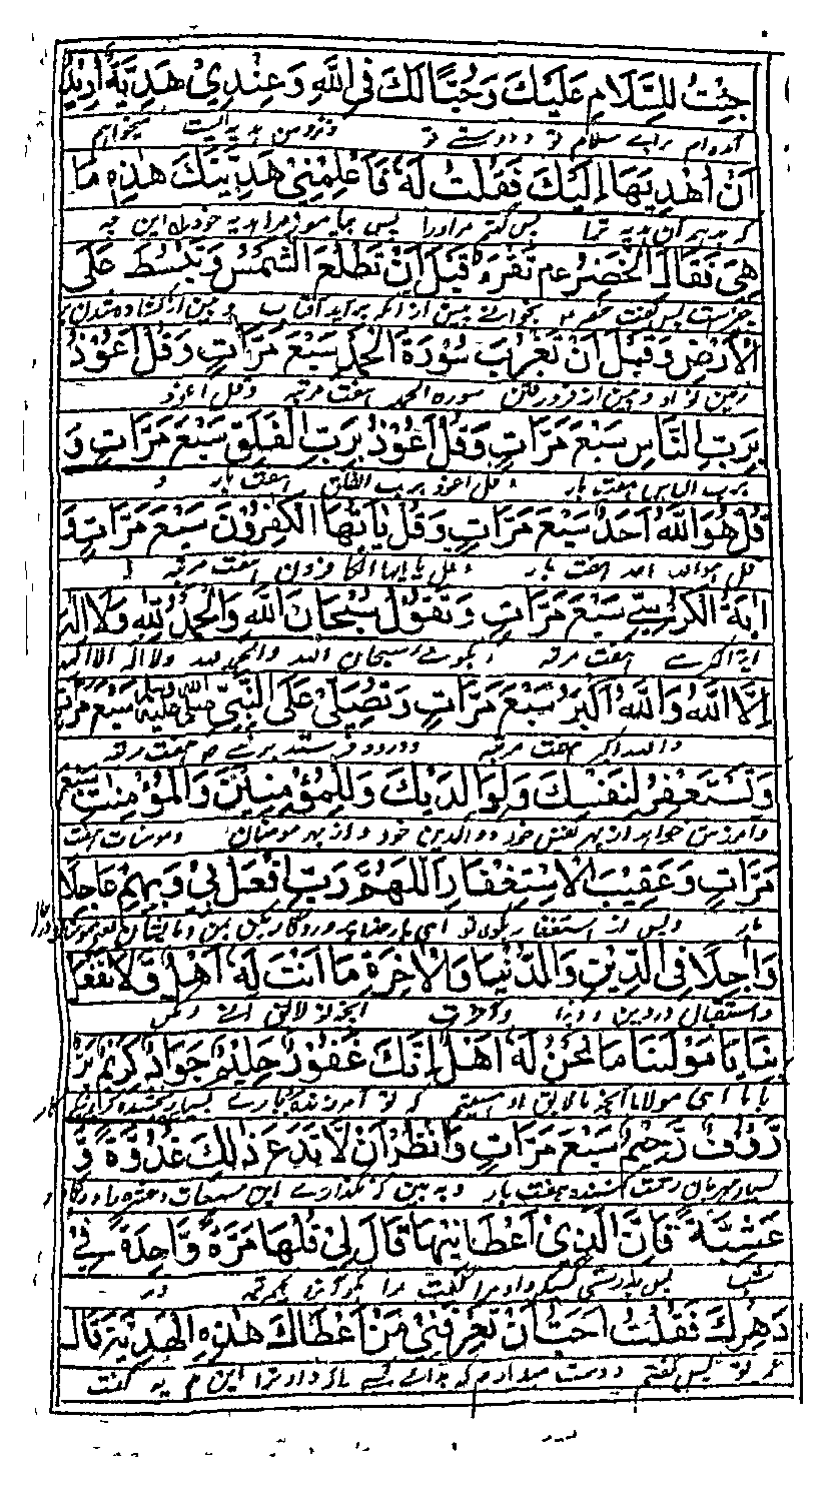 جِئْتُ لِلسَّلَامِ عَلَيْكَ وَحُبًّا لَكَ فِي اللّٰهِ وَعِنْدِيْ هَدِيَّةٌ اُرِيْدُ
آمده‌ام براے سلام تو و دوستے تو و نزد من هدیه ایست میخواهم
اَنْ اُهْدِيَهَا اِلَيْكَ فَقُلْتُ لَهٗ فَاَعْلِمْنِيْ هَدِيَّتَكَ هٰذِهِ مَا
که بدهم آن هدیه ترا پس گفتم مراورا پس بیاموز مرا هدیه خود را این چه
هِيَ فَقَالَ الْخَضِرُ عم تَقْرَءُ قَبْلَ اَنْ تَطْلُعَ الشَّمْسُ وَتَبْسُطَ عَلَى
چیزست پس گفت خضر بخوانے پیش از آنکه برآید آفتاب و پیش از
الْاَرْضِ وَقَبْلَ اَنْ تَغْرُبَ سُوْرَةَ الْحَمْدِ سَبْعَ مَرَّاتٍ وَقُلْ اَعُوْذُ
زمین و پیش از فرورفتن سوره الحمد هفت مرتبه و قل اعوذ
بِرَبِّ النَّاسِ سَبْعَ مَرَّاتٍ وَقُلْ اَعُوْذُ بِرَبِّ الْفَلَقِ سَبْعَ مَرَّاتٍ وَ
برب الناس هفت بار و قل اعوذ برب الفلق هفت بار و
قُلْ هُوَ اللّٰهُ اَحَدٌ سَبْعَ مَرَّاتٍ وَقُلْ يٰاَيُّهَا الْكٰفِرُوْنَ سَبْعَ مَرَّاتٍ وَ
قل هو الله احد هفت بار و قل یا ایها الکافرون هفت مرتبه و
اٰيَةَ الْكُرْسِيِّ سَبْعَ مَرَّاتٍ وَتَقُوْلُ سُبْحَانَ اللّٰهِ وَالْحَمْدُ لِلّٰهِ وَلَا اِلٰهَ
آیة الکرسے هفت مرتبه و بگوئے سبحان الله والحمد لله ولا اله الا الله
اِلَّا اللّٰهُ وَاللّٰهُ اَكْبَرُ سَبْعَ مَرَّاتٍ وَتُصَلِّيْ عَلَى النَّبِيِّ صلى الله عليه وسلم سَبْعَ مَرَّاتٍ
والله اکبر هفت مرتبه و درود فرستد برنبے ص هفت مرتبه
وَتَسْتَغْفِرُ لِنَفْسِكَ وَلِوَالِدَيْكَ وَلِلْمُؤْمِنِيْنَ وَالْمُؤْمِنٰتِ سَبْعَ
و آمرزش خواهد از بهر نفس خود و والدین خود و از بهر مومنان و مومنات هفت
مَرَّاتٍ وَعَقِيْبَ الْاِسْتِغْفَارِ اَللّٰهُمَّ رَبِّ افْعَلْ بِيْ وَبِهِمْ عَاجِلًا
بار و پس از استغفار بگوی تو ای بارخدا پروردگار بکن بمن و بایشان
وَاٰجِلًا فِي الدِّيْنِ وَالدُّنْيَا وَالْاٰخِرَةِ مَا اَنْتَ لَهٗ اَهْلٌ وَّلَا تَفْعَلْ
و استقبال در دین و دنیا و آخرت آنچه تو لائق آنے و مکن
بِنَا يَا مَوْلَيْنَا مَا نَحْنُ لَهٗ اَهْلٌ اِنَّكَ غَفُوْرٌ حَلِيْمٌ جَوَادٌ كَرِيْمٌ بَرٌّ
با ما ای مولانا آنچه ما لایق او هستیم که تو آمرزنده بردبارے بسیار بخشنده
رَّؤُفٌ رَّحِيْمٌ سَبْعَ مَرَّاتٍ وَانْظُرْ اَنْ لَا تَدَعَ ذٰلِكَ غُدْوَةً وَّ
بسیار مهربان رحمت کننده هفت بار و به بین که نگذارے این مسبعات عشره را
عَشِيَّةً فَاِنَّ الَّذِيْ اَعْطَانِيْهَا قَالَ لِيْ قُلْهَا مَرَّةً وَّاحِدَةً فِيْ
شب پس بدرستی کسیکه داد مرا گفت مرا بگو آنرا یکمرتبه در
دَهْرِكَ فَقُلْتُ اُحِبُّ اَنْ تُعَرِّفَنِيْ مَنْ اَعْطَاكَ هٰذِهِ الْهَدِيَّةَ قَالَ
عمر تو پس گفتم دوست میدارم که بدانے که داد ترا این هدیه گفت